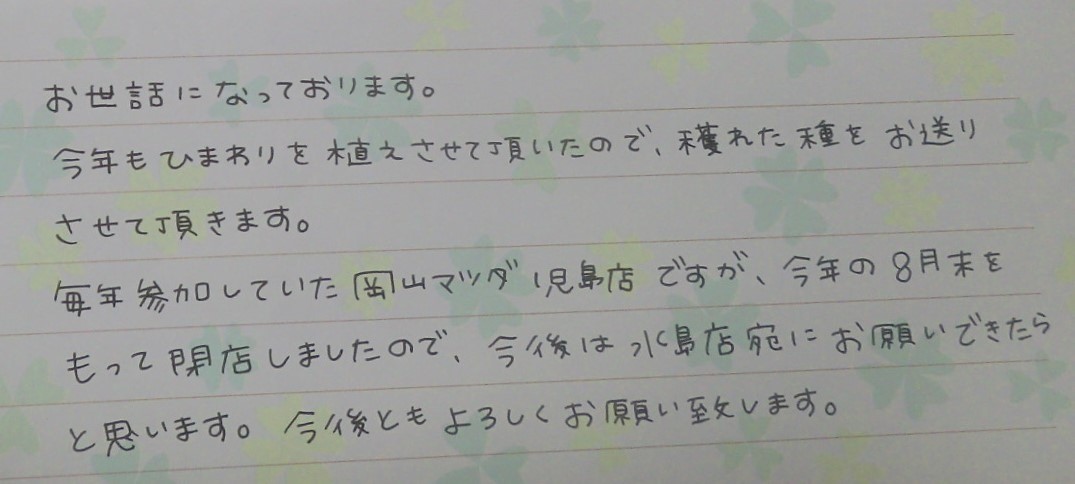 お世話になっております。
今年もひまわりを植えさせて頂いたので、穫れた種をお送り
させて頂きます。
毎年参加していた岡山マツダ児島店ですが、今年の8月末を
もって閉店しましたので、今後は水島店宛にお願いできたら
と思います。今後ともよろしくお願い致します。